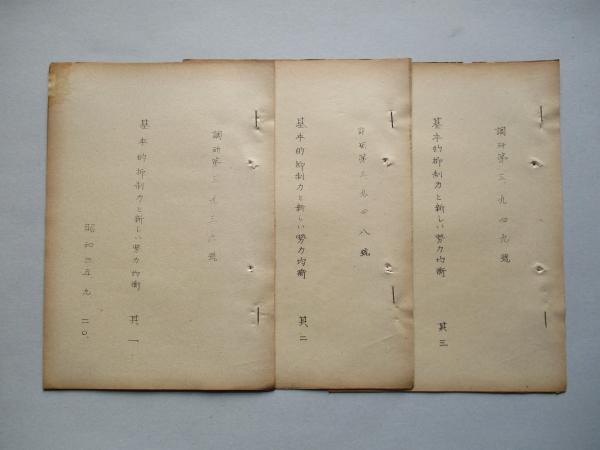 調研第三、九三六號
基本的抑制力と新しい勢力均衡 其、一
昭和三五、九、二〇、
調研第三、九四八號
基本的抑制力と新しい勢力均衡 其、二
調研第三、九四九號
基本的抑制力と新しい勢力均衡 其三